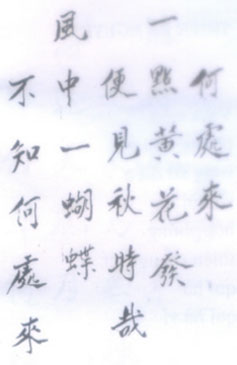 何處來
一點黃花發
便見秋時哉
風中一蝴蝶
不知何處來